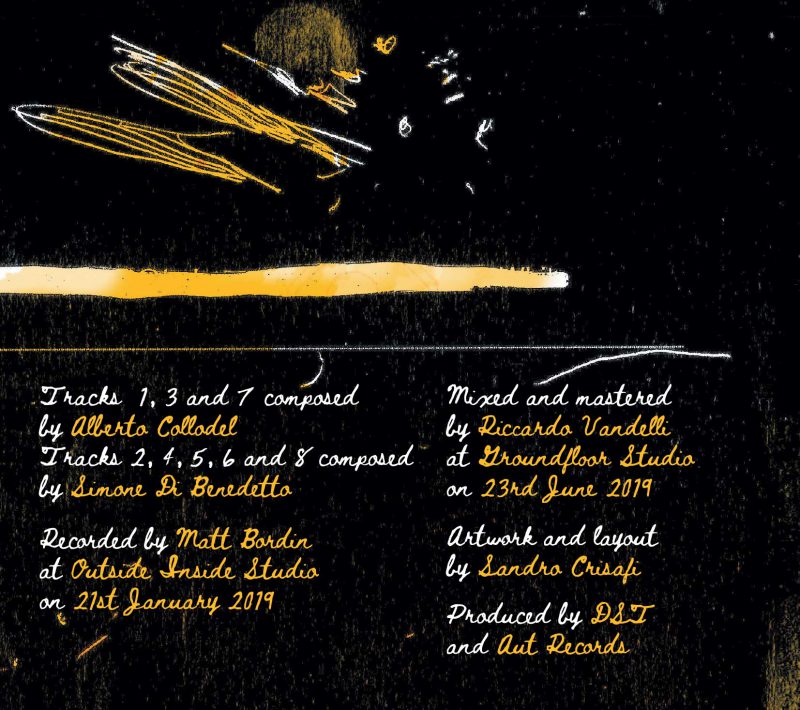 Tracks 1, 3 and 7 composed
by Alberto Collodel
Tracks 2, 4, 5, 6 and 8 composed
by Simone Di Benedetto
Recorded by Matt Bordin
at Outside Inside Studio
on 21st January 2019
Mixed and mastered
by Riccardo Vandelli
at Groundfloor Studio
on 23rd June 2019
Artwork and layout
by Sandro Crisafi
Produced by DST
and Aut Records